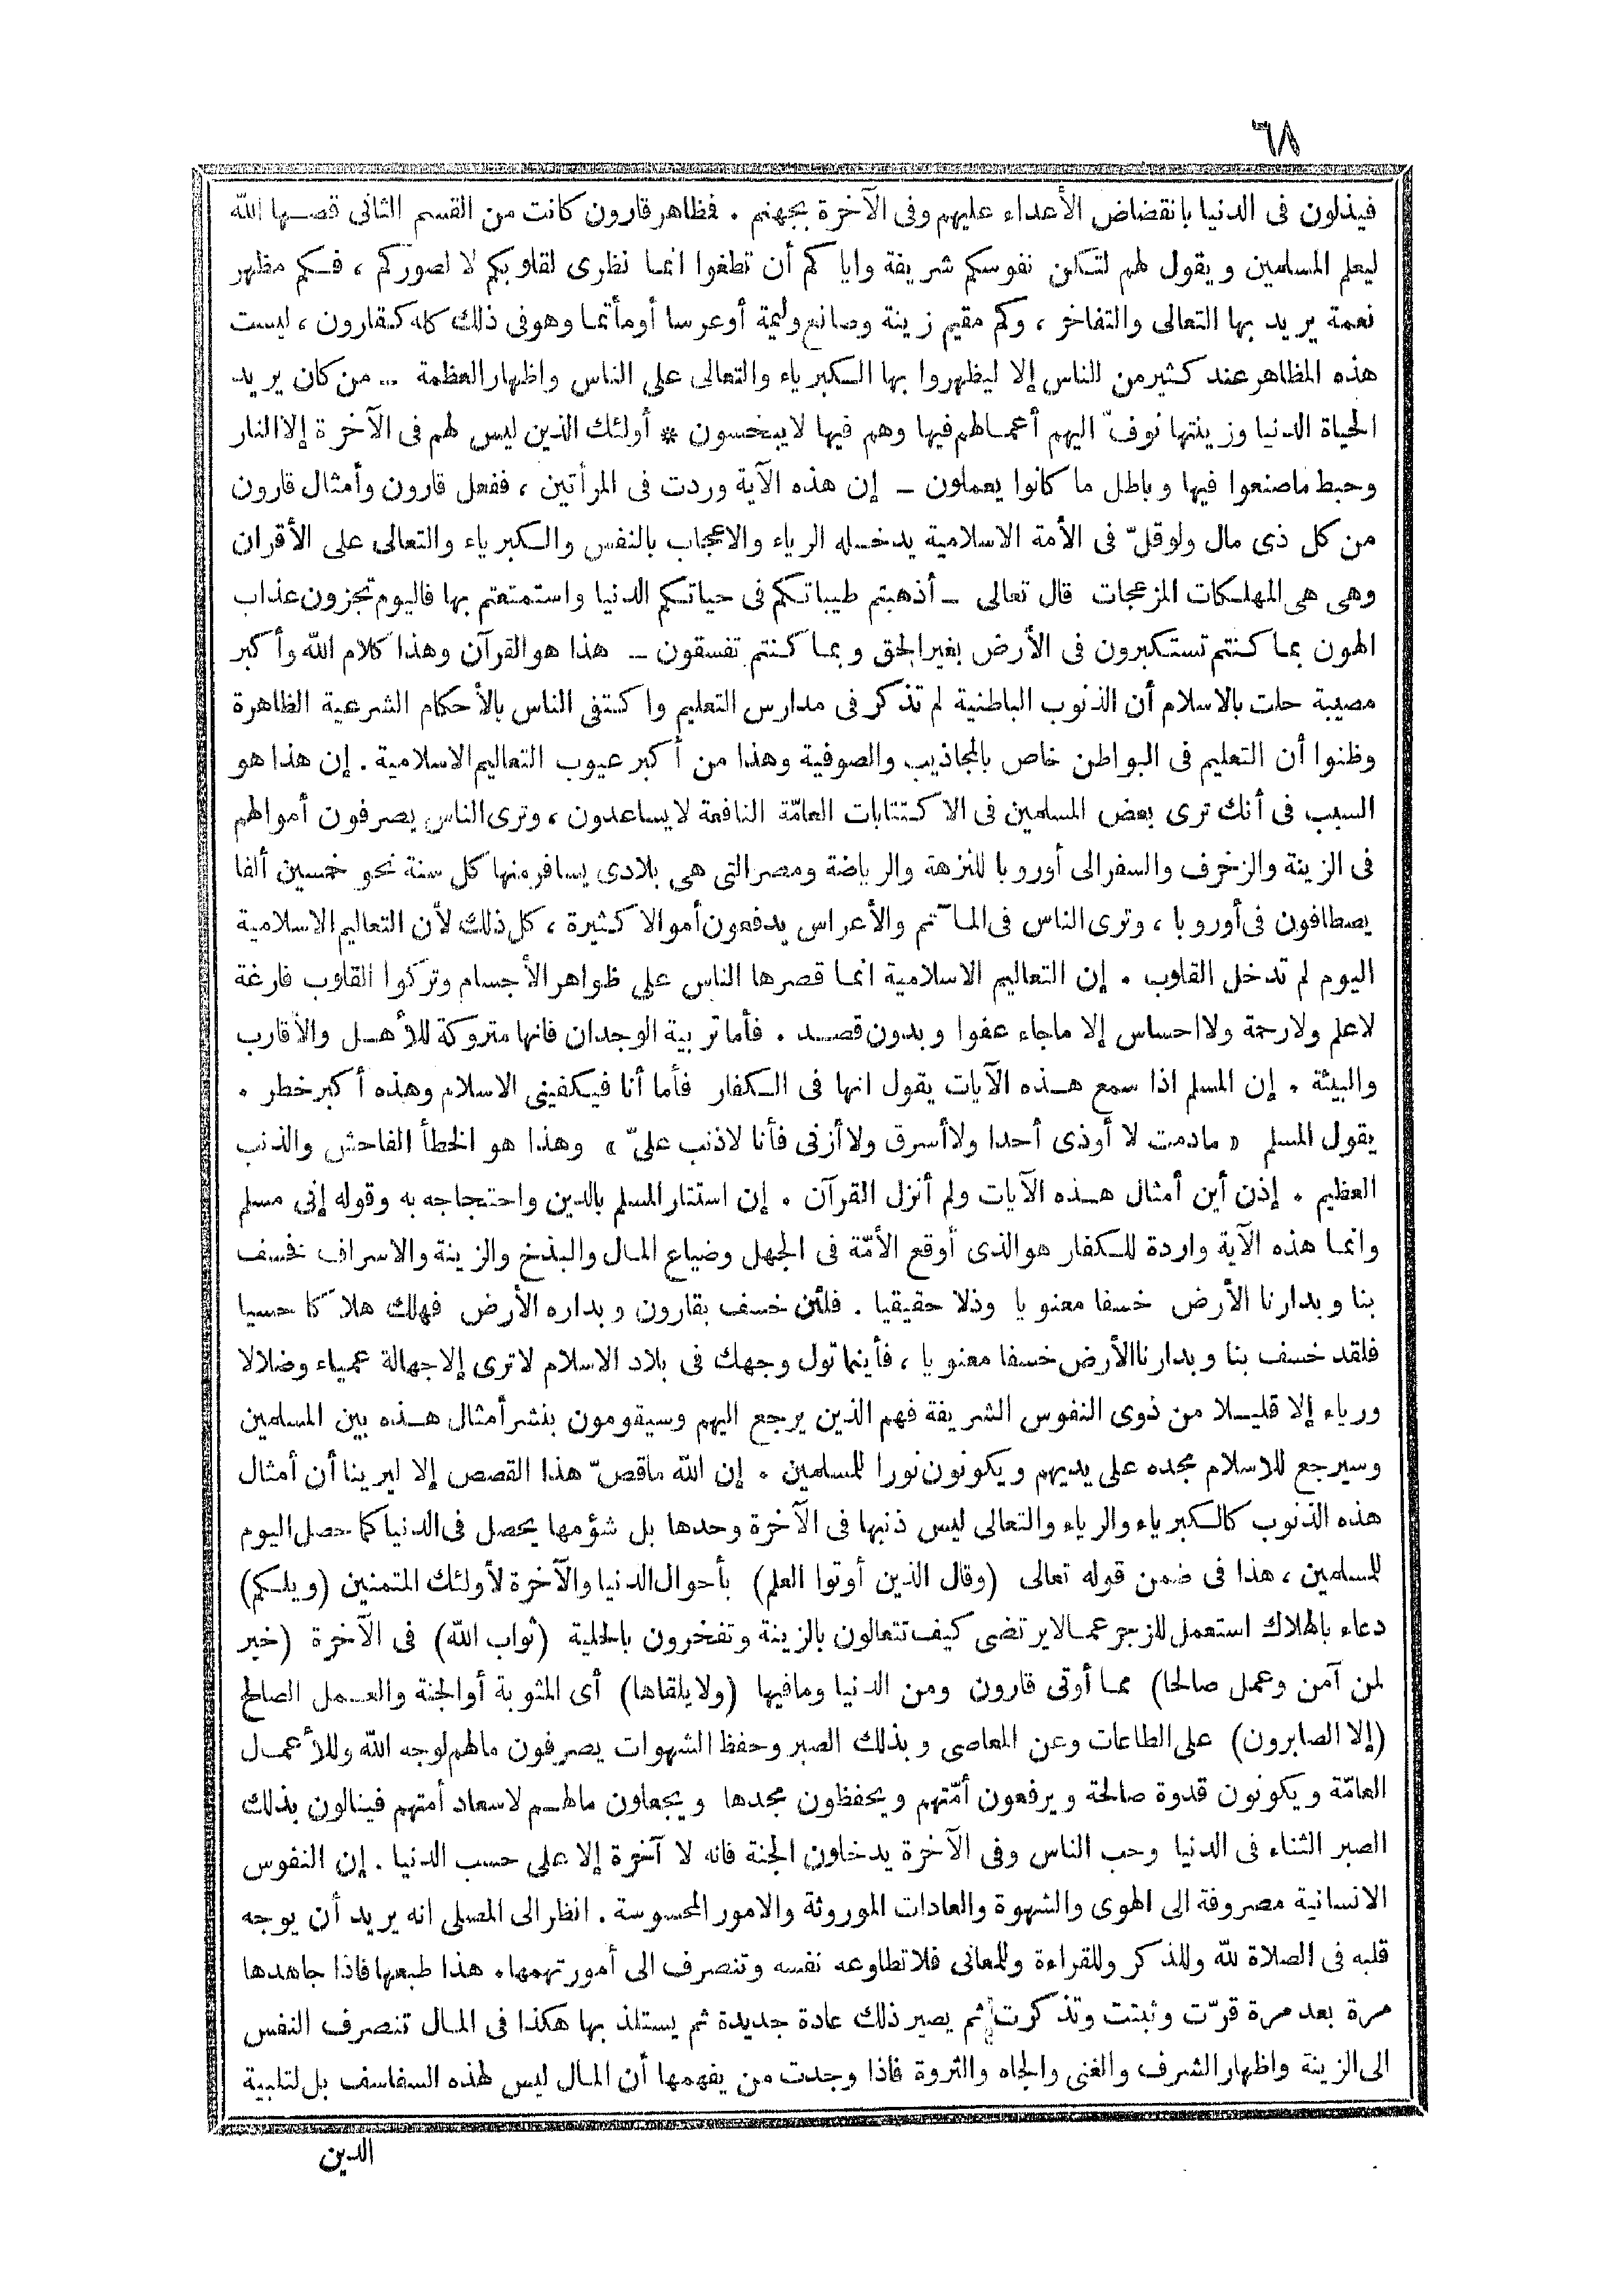 ٦٨
فيذلون فى الدنيا بانقضاض الأعداء عليهم وفى الآخرة بجهنم . فظاهر قارون كانت من القسم الثانى قصها الله
ليعلم المسلمين ويقول لهم لتكن نفوسكم شريفة واياكم أن تطغوا انما نظرى لقلوبكم لا لصوركم ، فكم مظهر
نعمة يريد بها التعالى والتفاخر ، وكم مقيم زينة وصانع وليمة أو عرسا أو مأتما وهو فى ذلك كله كقارون ، ليست
هذه المظاهر عند كثير من الناس إلا ليظهروا بها الكبرياء والتعالى على الناس واظهار العظمة – من كان يريد
الحياة الدنيا وزينتها نوفّ اليهم أعمالهم فيها وهم فيها لايبخسون * أولئك الذين ليس لهم فى الآخرة إلا النار
وحبط ماصنعوا فيها وباطل ما كانوا يعملون – إن هذه الآية وردت فى المرأتين ، ففعل قارون وأمثال قارون
من كل ذى مال ولو قلّ فى الأمة الاسلامية يدخله الرياء والاعجاب بالنفس والكبرياء والتعالى على الأقران
وهى هى المهلكات المزعجات قال تعالى – أذهبتم طيباتكم فى حياتكم الدنيا واستمتعتم بها فاليوم تجزون عذاب
الهون بما كنتم تستكبرون فى الأرض بغير الحق وبما كنتم تفسقون – هذا هو القرآن وهذا كلام الله وأكبر
مصيبة حلت بالاسلام أن الذنوب الباطنية لم تذكر فى مدارس التعليم واكتفى الناس بالأحكام الشرعية الظاهرة
وظنوا أن التعليم فى البواطن خاص بالمجاذيب والصوفية وهذا من أكبر عيوب التعاليم الاسلامية . إن هذا هو
السبب فى أنك ترى بعض المسلمين فى الاكتتابات العامّة النافعة لايساعدون ، وترى الناس يصرفون أموالهم
فى الزينة والزخرف والسفر الى أوروبا للنزهة والرياضة ومصر التى هى بلادى يسافر منها كل سنة نحو خمسين ألفا
يصطافون فى أوروبا ، وترى الناس فى المآتم والأعراس يدفعون أموالا كثيرة ، كل ذلك لأن التعاليم الاسلامية
اليوم لم تدخل القلوب . إن التعاليم الاسلامية انما قصرها الناس على ظواهر الأجسام وتركوا القلوب فارغة
لاعلم ولارحمة ولااحساس إلا ماجاء عفوا وبدون قصد . فأما تربية الوجدان فانها متروكة للأهل والأقارب
والبيئة . إن المسلم اذا سمع هذه الآيات يقول انها فى الكفار فأما أنا فيكفينى الاسلام وهذه أكبر خطر .
يقول المسلم « مادمت لا أوذى أحدا ولاأسرق ولاأزنى فأنا لاذنب علىّ » وهذا هو الخطأ الفاحش والذنب
العظيم . إذن أين أمثال هذه الآيات ولم أنزل القرآن . إن استتار المسلم بالدين واحتجاجه به وقوله إنى مسلم
وانما هذه الآية واردة للكفار هو الذى أوقع الأمّة فى الجهل وضياع المال والبذخ والزينة والاسراف فخسف
بنا وبدارنا الأرض خسفا معنويا وذلا حقيقيا . فلئن خسف بقارون وبداره الأرض فهلك هلاكا حسيا
فلقد خسف بنا وبدارنا الأرض خسفا معنويا ، فأينما تول وجهك فى بلاد الاسلام لاترى إلا جهالة عمياء وضلالا
ورياء إلا قليلا من ذوى النفوس الشريفة فهم الذين يرجع اليهم وسيقومون بنشر أمثال هذه بين المسلمين
وسيرجع للاسلام مجده على يديهم ويكونون نورا للمسلمين . إن الله ماقصّ هذا القصص إلا ليرينا أن أمثال
هذه الذنوب كالكبرياء والرياء والتعالى ليس ذنبها فى الآخرة وحدها بل شؤمها يحصل فى الدنيا كما حصل اليوم
للمسلمين ، هذا فى ضمن قوله تعالى (وقال الذين أوتوا العلم) بأحوال الدنيا والآخرة لأولئك المتمنين (ويلكم)
دعاء بالهلاك استعمل للزجر عما لايرتضى كيف تتعالون بالزينة وتفخرون بالحلية (ثواب الله) فى الآخرة (خير
لمن آمن وعمل صالحا) مما أوتى قارون ومن الدنيا ومافيها (ولا يلقاها) أى المثوبة أو الجنة والعمل الصالح
(إلا الصابرون) على الطاعات وعن المعاصى وبذلك الصبر وحفظ الشهوات يصرفون مالهم لوجه الله وللأعمال
العامّة ويكونون قدوة صالحة ويرفعون أمّتهم ويحفظون مجدها ويجعلون مالهم لاسعاد أمتهم فينالون بذلك
الصبر الثناء فى الدنيا وحب الناس وفى الآخرة يدخلون الجنة فانه لا آخرة إلا على حسب الدنيا . إن النفوس
الانسانية مصروفة الى الهوى والشهوة والعادات الموروثة والامور المحسوسة . انظر الى المصلى انه يريد أن يوجه
قلبه فى الصلاة لله وللذكر وللقراءة وللمعانى فلاتطاوعه نفسه وتنصرف الى أمور تهمها . هذا طبعها فاذا جاهدها
مرة بعد مرة قرّت وثبتت وتذكرت ثم يصير ذلك عادة جديدة ثم يستلذ بها هكذا فى المال تنصرف النفس
الى الزينة واظهار الشرف والغنى والجاه والثروة فاذا وجدت من يفهمها أن المال ليس لهذه السفاسف بل لتلبية
الدين